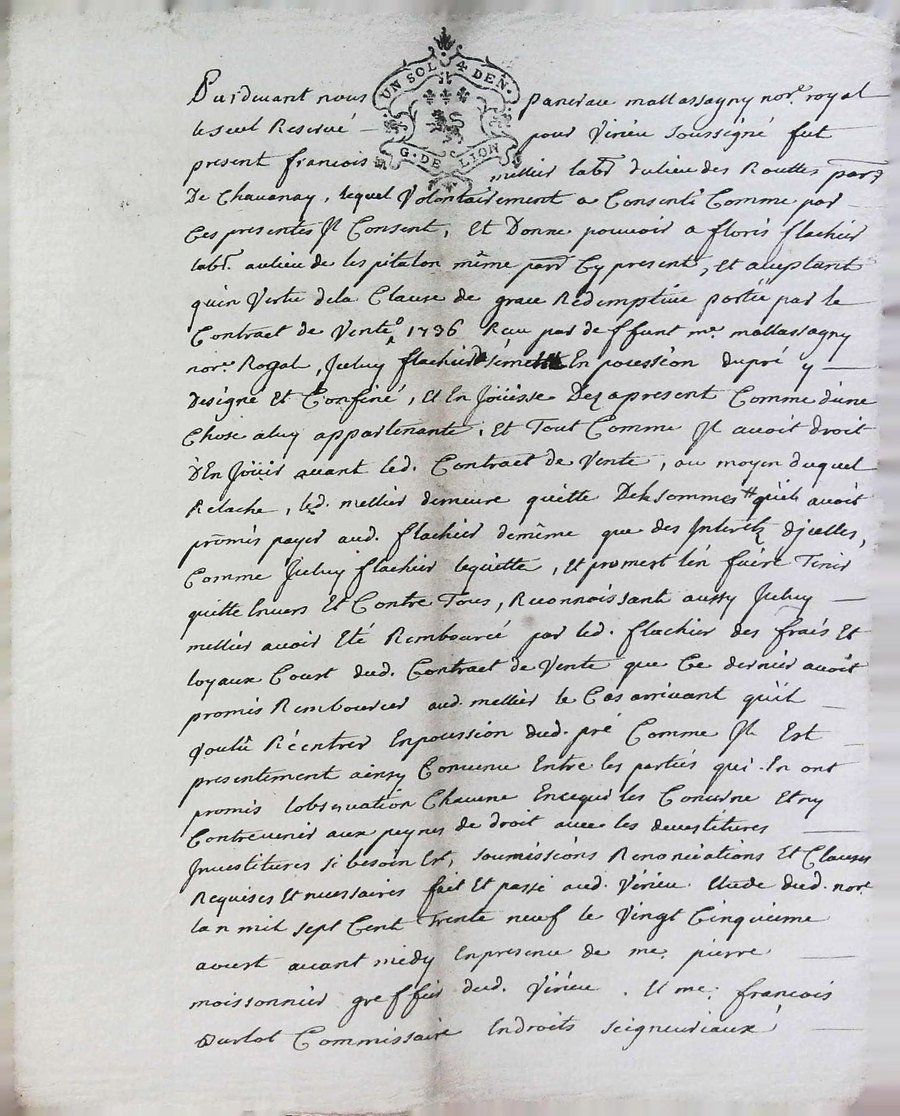 UN SOL 4 DEN.
G. DE LION
Pardevant nous pancrace mallassagny nore. royal
le seul Reservé pour Virieu soussigné fut
present francois mellier labr. du lieu des Routtes parr.
De Chavanay, lequel Volontairement a Consenti Comme par
Ces presentes Il Consent, et Donne pouvoir a floris flachier
labr. au lieu de lespitalon même parr. Cy present, et aceptant
qu'en Vertu dela Clause de grace Redemptive portée par le
Contract de Vente 1736 Recu par deffunt me. mallassagny
nore. Royal, Iceluy flachier En poucssion dupré y
Designé Et Confiné, et En Joüisse Dezapresent Comme d'une
Chose aluy appartenante, Et Tout Comme Il avoit droit
d'En Joüir avant led. Contract de Vente, au moyen duquel
Relache, led. mellier demeure quitte Des sommes qu'il avoit
promis payer aud. flachier demême que des Interêts d'jcelles,
Comme Jceluy flachier lequitte, et promert l'en faire Tenir
quitte Envers Et Contre Tous, Reconnoissant aussy Jceluy
mellier avoir Eté Remboursé par led. flachier des frais Et
loyaux Court dud. Contract de Vente que Ce dernier avoit
promis Rembourcer aud. mellier le Cas arrivant qu'il
Voulû Réentrer En poucssion dud. pré Comme Il Est
presentement ainsy Convenu Entre les parties qui En ont
promis lobservation Chacune Encequi les Concerne Et ny
Contrevenir aux peynes de droit avec les devestitures
Investitures si besoin Est, soumissions Renonciations Et Clauses
Requises Et necessaires fait Et passé aud. Virieu Etude dud. nore.
lan mil sept Cent Trente neuf le Vingt Cinquieme
aoust avant midy En presence de me. pierre
moissonnier greffier dud. Virieu. Et me. francois
Commissaire En droits seigneuriaux